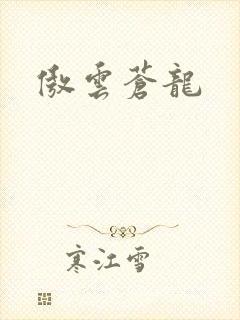 傲雲蒼龍
寒江雪